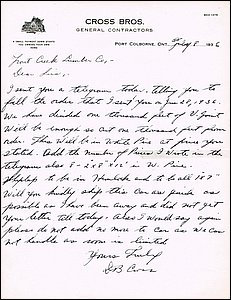 CROSS BROS.
GENERAL CONTRACTORS
PORT COLBORNE, ONT. July 8 1936
Trout Creek Lumber Co-
Dear Sirs
I sent you a telegram today, telling you to
fill the order that I sent you on June 20, 1936.
We have decided one thousand feet of V. Joint
Will be enough so cut one thousand feet from
order. This Will be in White Pine at price you
stated. Add the number of Pieces I Wrote in the
telegram also 8 - 2x8 - 12' in W. Pine.
Shiplap to be in Hemlock and to be all
Will you kindly ship this Car as quick as
possible as I have been away and did not get
your letter till today. Also I Would say again
please do not add no more to Car as We Can
not handle as room is limited
Yours Truly
Cross